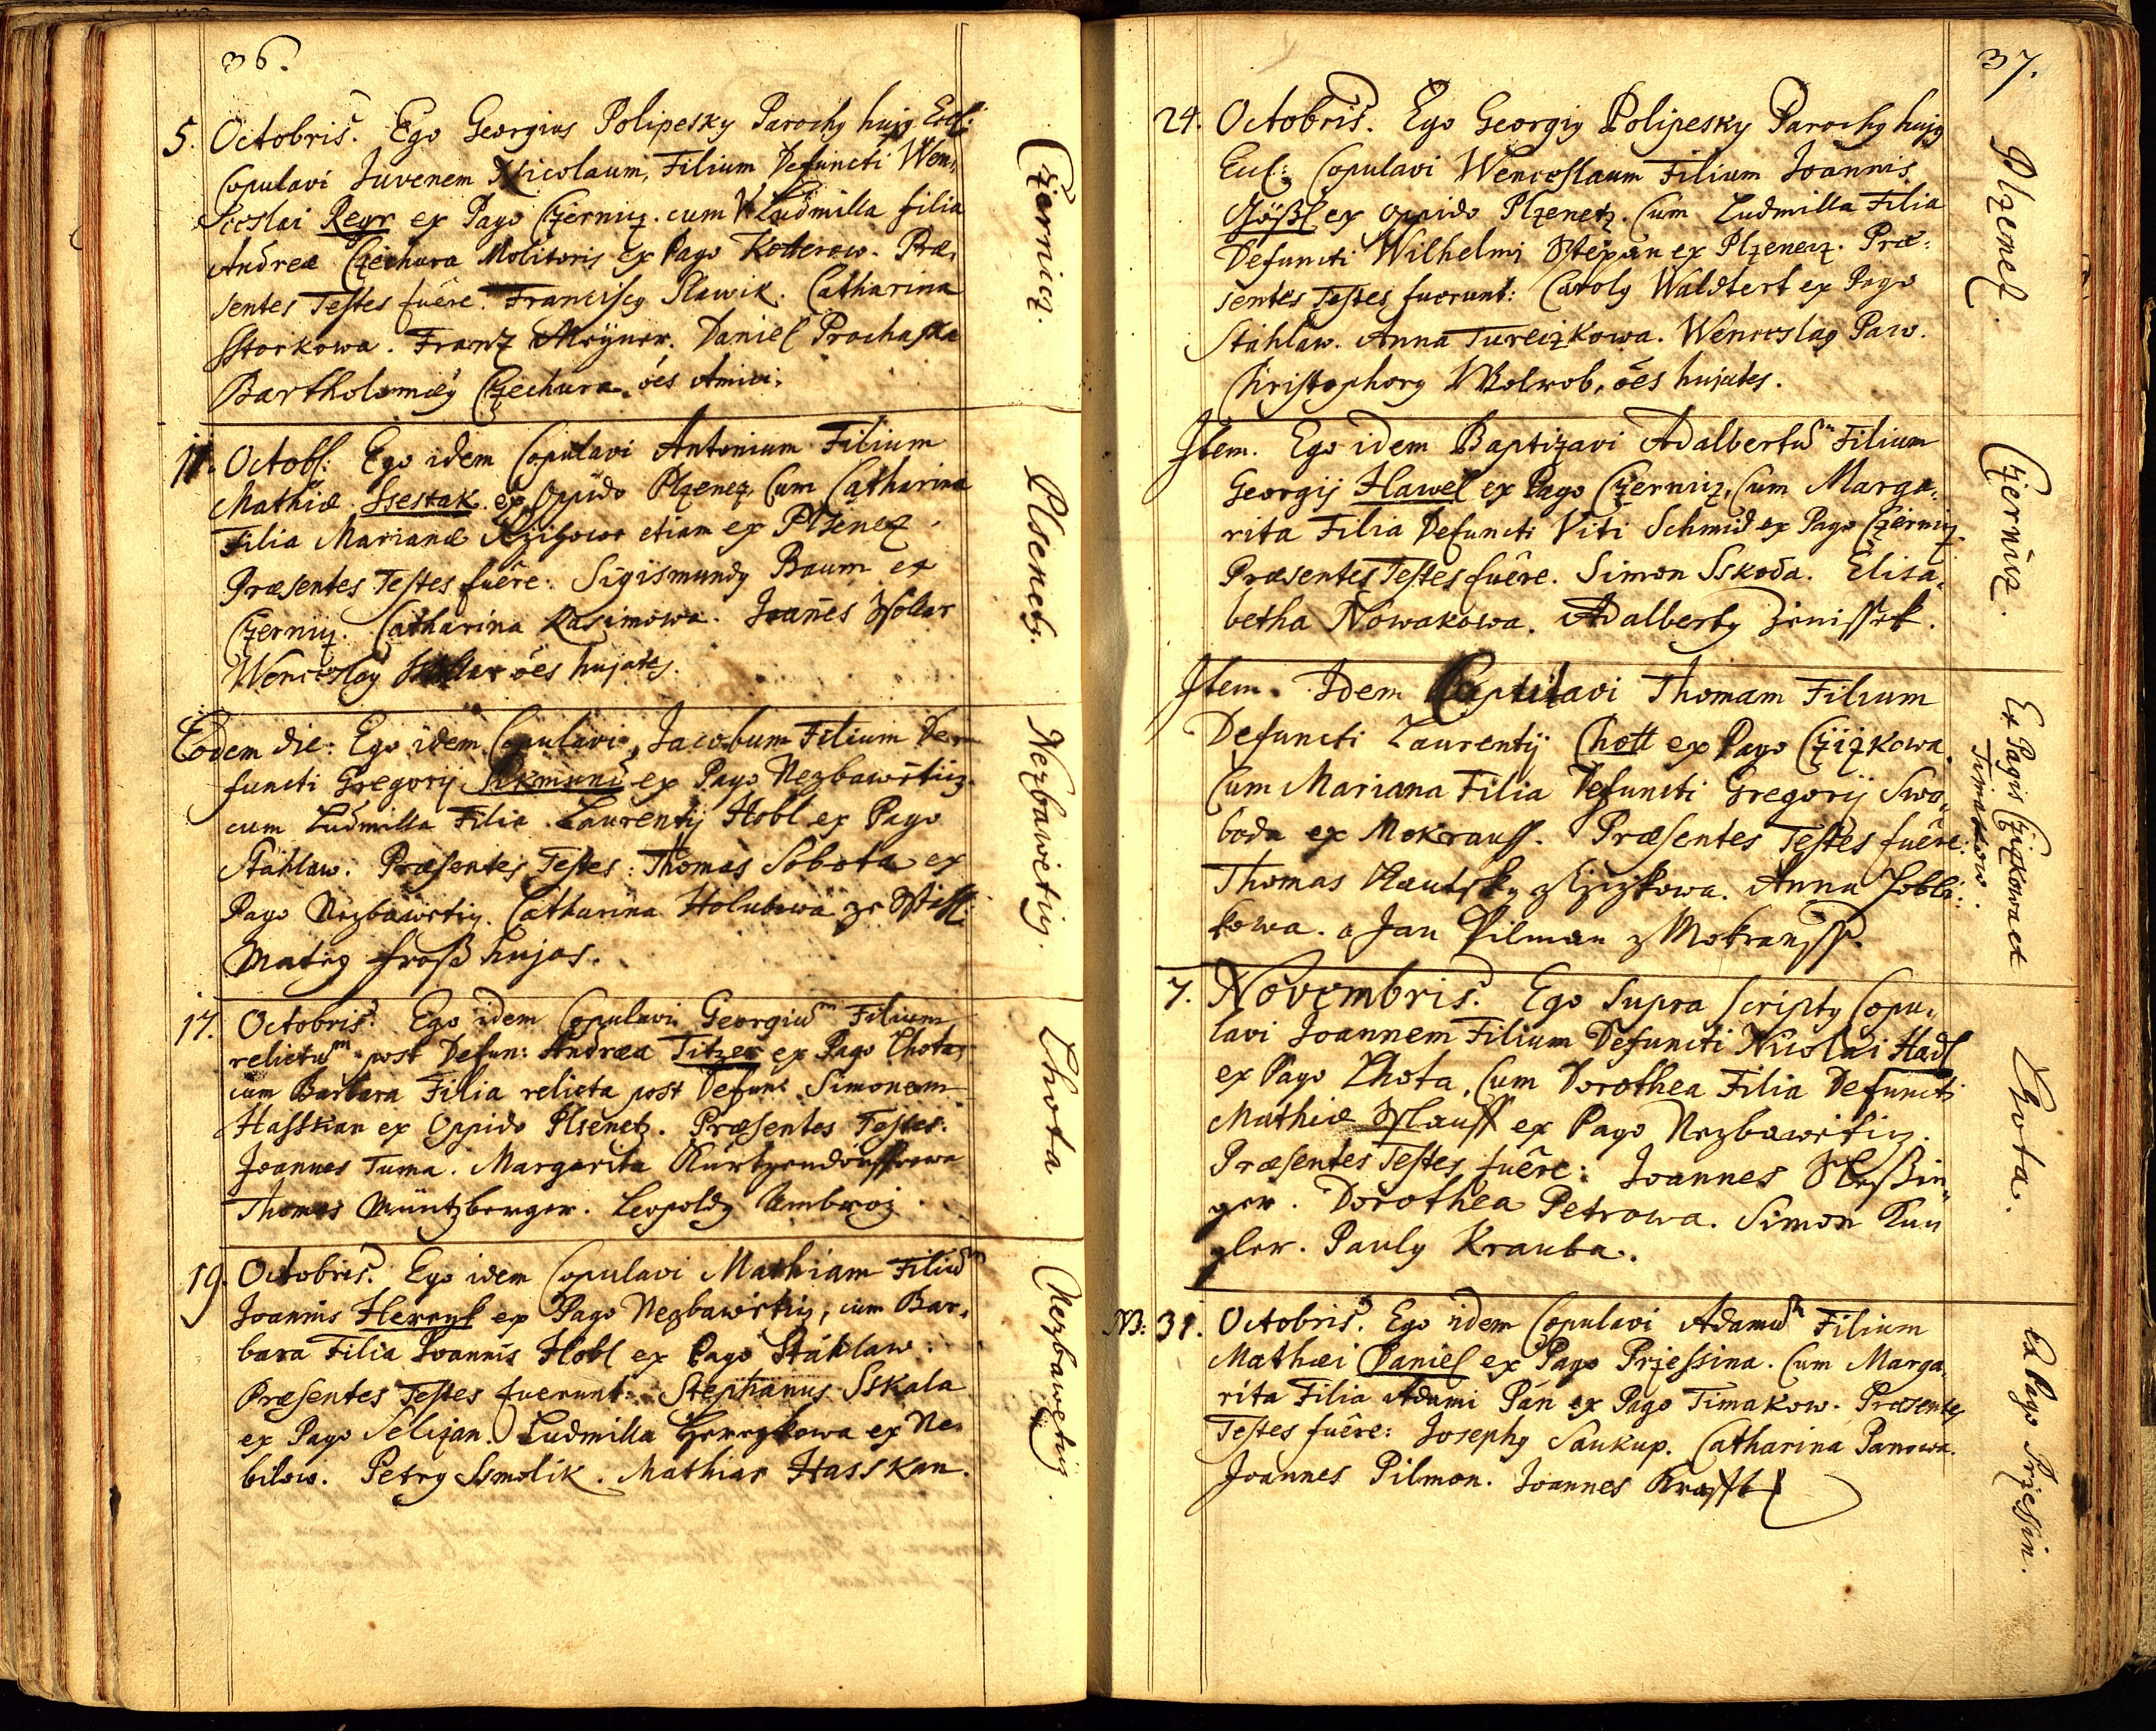 36.
5. Octobris. Ego Georgius Polipesky Parochy hujy Eccl:
Copulavi Juvenem Nicolaum, Filium Defuncti Wen,
ceslai Regr ex Pago Czernicz. cum Ludmilla filia
Andreæ Czechura Molitoris ex Pago Kotterow. Præ,
sentes Testes fuêre. Franciscy Slawik. Catharina
Sstorkowa. Frantz Meÿner. Daniel Prochaska
Bartholomæy Czechura. óes Amici.
Czernicz.
11. Octobr: Ego idem Copulavi Antonium Filium
Mathiæ Ssestak ex Oppido Plzenez, Cum Catharina
Filia Marianæ etiam ex Plzenez.
Præsentes Testes fuêre: Sigismundy Baum ex
Czernicz. Catharina Kasimowa. Joañes Wollar
Wenceslay óes hujates.
Plsenetz.
Eodem die: Ego idem Copulavi, Jacobum Filium De,
functi Gregorij Sikmund ex Pago Nezbawieticz.
cum Ludmilla Filia Laurentij Hobl ex Pago
Stáhlaw. Præsentes Testes: Thomas Sobota ex
Pago Nezbaweticz. Catharina Holubowa ze
Mateg hujas.
Nezbawieticz.
17. Octobris: Ego idem Copulavi Georgiũ Filium
relictũ post Defun: Andræa Titzer ex Pago Lhota,
cum Barbara Filia relicta post Defunc. Simonem
Hasskan ex Oppido Plsenetz. Præsentes Testes.
Joannes Tuma. Margarita
Thomas Müntzberger. Leopoldy Ambroz.
Lhota
19. Octobris. Ego idem Copulavi Mathiam Filiũ
Joannis Herczyk ex Pago Nezbawieticz, cum Bar,
bara Filia Joannis Hobl ex Pago Stáhlaw.
Præsentes Testes fuerunt. Stephanus Sskala
ex Pago Selczan. Ludmilla Herczkowa ex Ne,
bilow. Petry Ssmolik. Mathias Hasskan.
Nezbaweticz.
37.
24. Octobris. Ego Georgiy Polipesky Parochy hujy
Eccl: Copulavi Wenceslaum Filium Joannis
Gößl ex Oppido Plzenetz. Cum Ludmilla Filia
Defuncti Wilhelmi Stepan ex Plzenecz. Præ:
sentes Testes fuerunt: Caroly Waldtert ex Pago
Stahlaw. Anna Tureczkowa. Wenceslay Paw.
Christophory Wolrob, óes hujates.
Plzenetz.
Item. Ego idem Baptizavi Adalbertũ Filium
Georgij Hawel ex Pago Czernicz, Cum Marga,
rita Filia Defuncti Viti Schmid ex Pago Czernicz.
Præsentes Testes fuêre. Simon Sskoda. Elisa,
betha Nowakowa. Adalberty Jenissek.
Czernicz.
Item. Idem Thomam Filium
Defuncti Laurentij Chott ex Pago Czizkowa.
Cum Mariana Filia Defuncti Gregorij Swo,
boda ex Mokrauss. Præsentes Testes fuêre:
Thomas Kautsky z Czizkowa. Anna
kowa. a Jan Pilman z Mokraussj.
Ex Pagis Czizkowa et
Timakow.
7. Novembris. Ego Supra scripty Copu,
lavi Joannem Filium Defuncti Nicolai Hadl
ex Pago Lhota. Cum Dorothea Filia Defuncti
Mathiæ Wlauss ex Pago Nezbawieticz.
Præsentes Testes fuêre: Joannes
ger. Dorothea Petrowa. Simon Kun
gler. Pauly Krauba.
Lhota.
NB: 31. Octobris. Ego idem Copulavi Adamũ Filium
Mathæi Daniel ex Pago Przessina. Cum Marga,
rita Filia Adami Pán ex Pago Timakow. Præsentes
Testes fuêre: Josephy Saukup. Catharina Panowa.
Joannes Pilmon. Joannes
ex Pago Przessin.